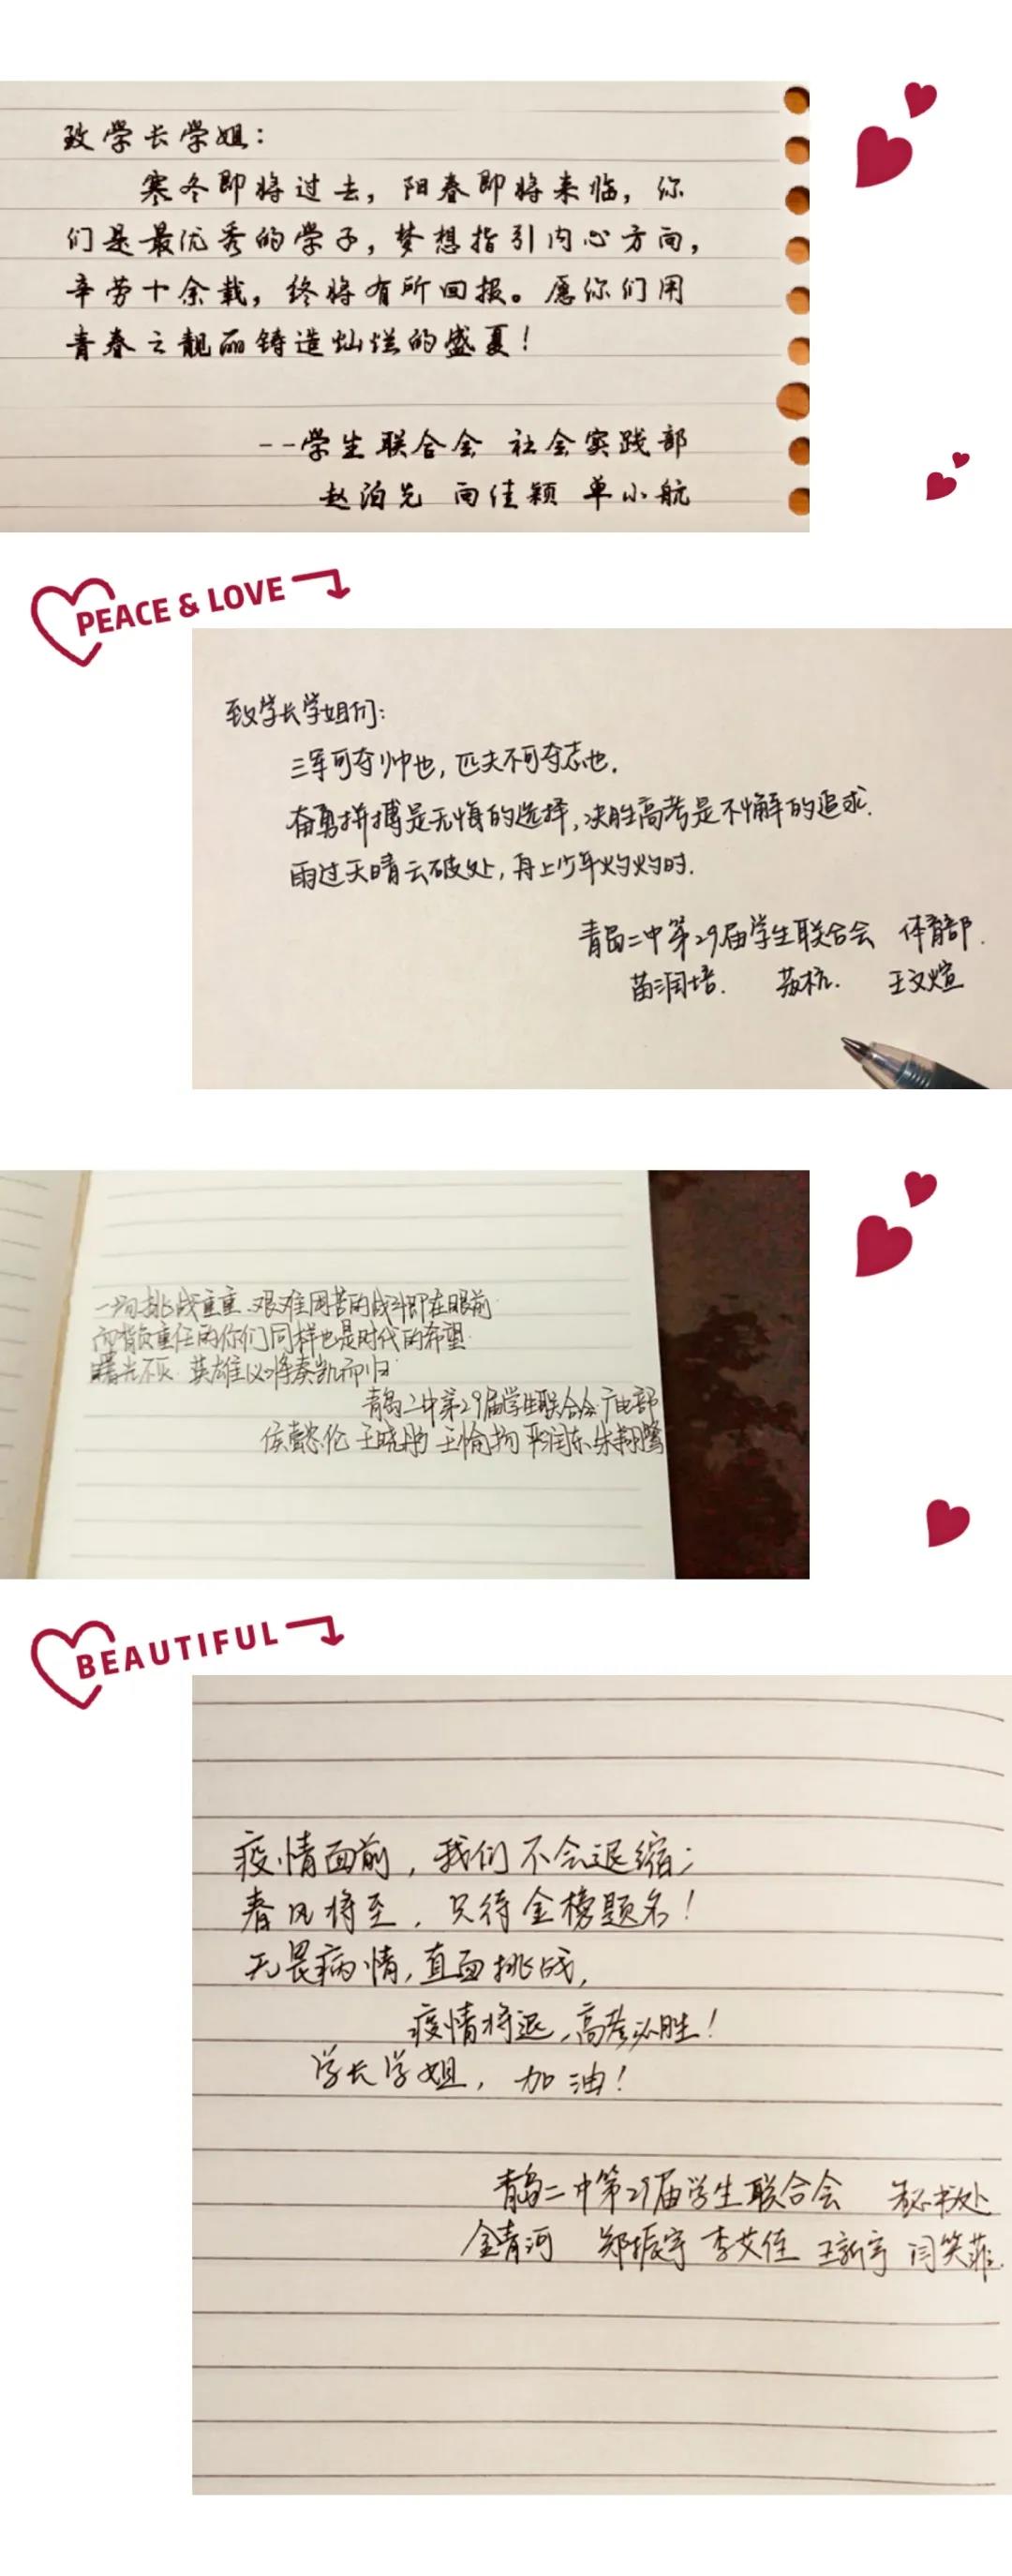 致学长学姐：
寒冬即将过去，阳春即将来临，你
们是最优秀的学子，梦想指引内心方向，
辛劳十余载，终将有所回报。愿你们用
青春之靓丽铸造灿烂的盛夏！
--学生联合会 社会实践部
赵泊先 向佳颖 单小航
PEACE & LOVE
致学长学姐们：
三军可夺帅也，匹夫不可夺志也.
奋勇拼搏是无悔的选择，决胜高考是不懈的追求.
雨过天晴云破处，再上少年灼灼时.
青岛二中第29届学生联合会 体育部.
苗润培. 苏杭. 王文煊
一场挑战重重、艰难困苦的战斗即在眼前
而背负重任的你们同样也是时代的希望
曙光不灭 英雄必将奏凯而归
青岛二中第29届学生联合会广电部
侯懿伦 王晓彤 王愉扬 润东 朱翔鹭
BEAUTIFUL
疫情面前，我们不会退缩；
春风将至，只待金榜题名！
无畏病情，直面挑战，
疫情将退，高考必胜！
学长学姐，加油！
青岛二中第29届学生联合会 秘书处
金青河 郑振宇 李艾佳 王新宇 闫笑菲.